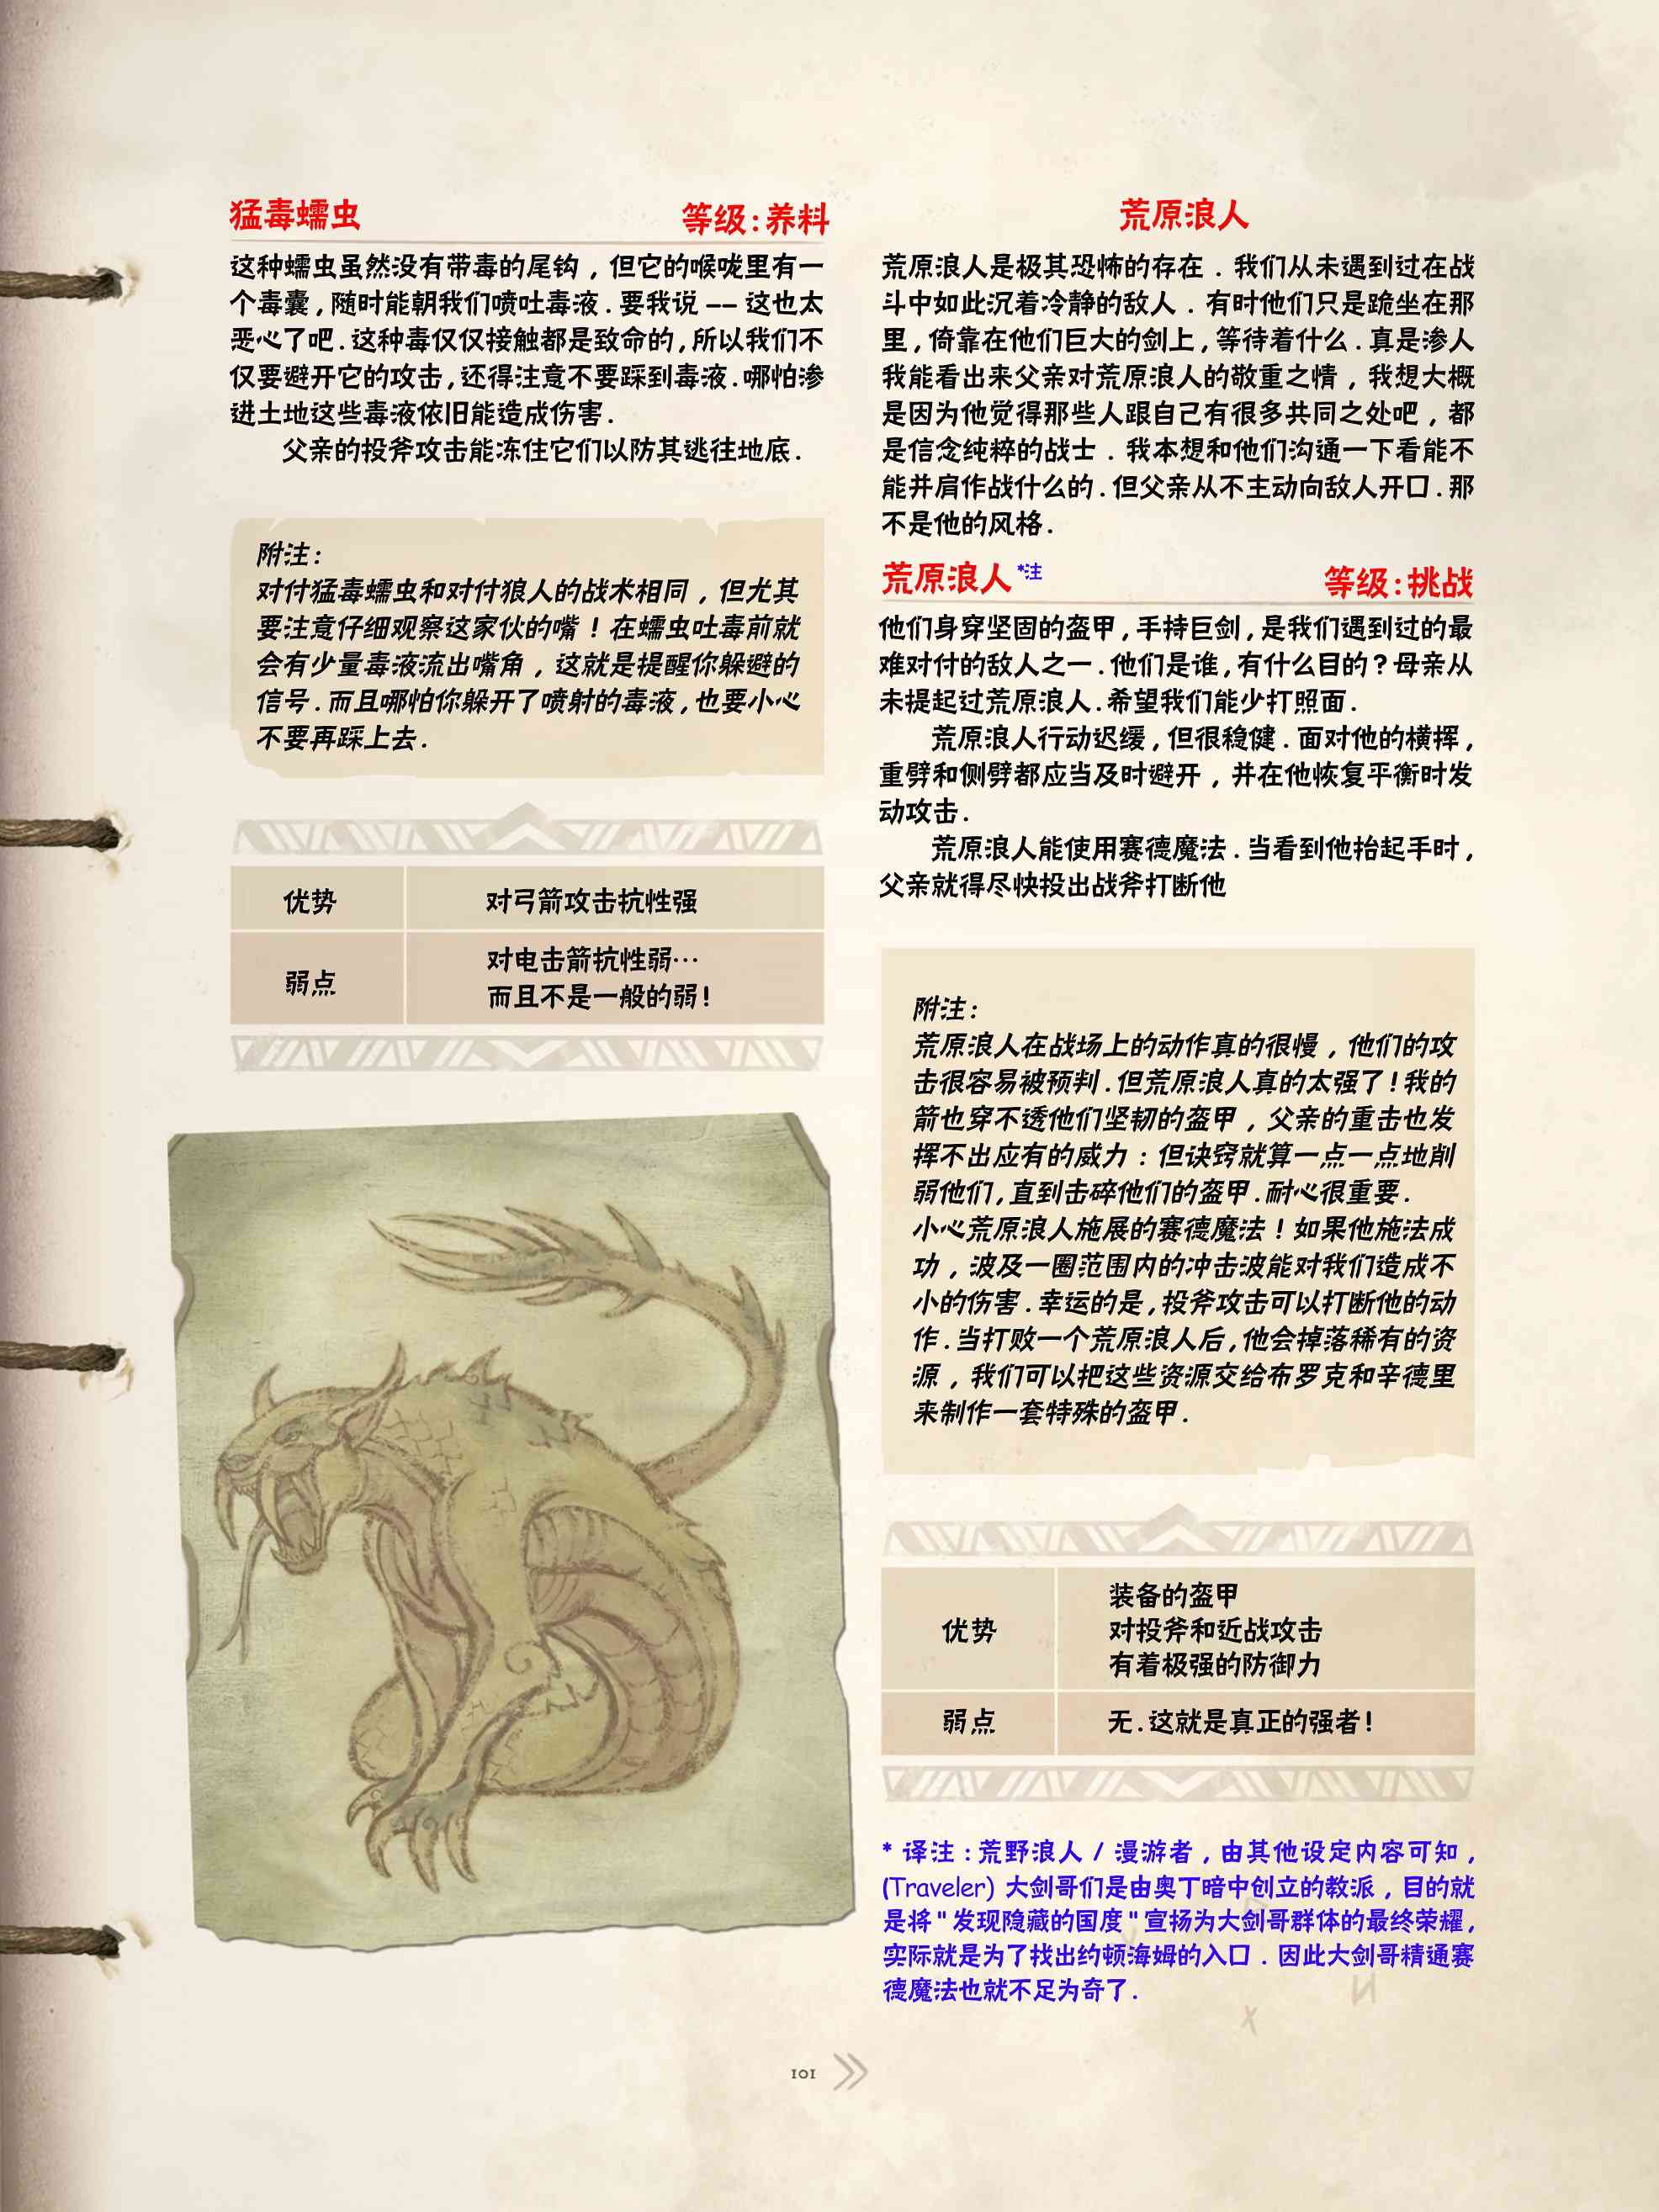 猛毒蠕虫
等级:养料
这种蠕虫虽然没有带毒的尾钩，但它的喉咙里有一
个毒囊,随时能朝我们喷吐毒液.要我说 —— 这也太
恶心了吧.这种毒仅仅接触都是致命的,所以我们不
仅要避开它的攻击,还得注意不要踩到毒液.哪怕渗
进土地这些毒液依旧能造成伤害.
父亲的投斧攻击能冻住它们以防其逃往地底.
附注:
对付猛毒蠕虫和对付狼人的战术相同，但尤其
要注意仔细观察这家伙的嘴！在蠕虫吐毒前就
会有少量毒液流出嘴角，这就是提醒你躲避的
信号.而且哪怕你躲开了喷射的毒液,也要小心
不要再踩上去.
优势
对弓箭攻击抗性强
弱点
对电击箭抗性弱…
而且不是一般的弱!
荒原浪人
荒原浪人是极其恐怖的存在．我们从未遇到过在战
斗中如此沉着冷静的敌人．有时他们只是跪坐在那
里,倚靠在他们巨大的剑上,等待着什么.真是渗人
我能看出来父亲对荒原浪人的敬重之情，我想大概
是因为他觉得那些人跟自己有很多共同之处吧，都
是信念纯粹的战士．我本想和他们沟通一下看能不
能并肩作战什么的.但父亲从不主动向敌人开口.那
不是他的风格.
荒原浪人*注
等级:挑战
他们身穿坚固的盔甲,手持巨剑,是我们遇到过的最
难对付的敌人之一.他们是谁,有什么目的?母亲从
未提起过荒原浪人.希望我们能少打照面.
荒原浪人行动迟缓,但很稳健.面对他的横挥,
重劈和侧劈都应当及时避开，并在他恢复平衡时发
动攻击.
荒原浪人能使用赛德魔法.当看到他抬起手时,
父亲就得尽快投出战斧打断他
附注:
荒原浪人在战场上的动作真的很慢，他们的攻
击很容易被预判.但荒原浪人真的太强了!我的
箭也穿不透他们坚韧的盔甲，父亲的重击也发
挥不出应有的威力：但诀窍就算一点一点地削
弱他们,直到击碎他们的盔甲.耐心很重要.
小心荒原浪人施展的赛德魔法！如果他施法成
功，波及一圈范围内的冲击波能对我们造成不
小的伤害.幸运的是,投斧攻击可以打断他的动
作.当打败一个荒原浪人后,他会掉落稀有的资
源，我们可以把这些资源交给布罗克和辛德里
来制作一套特殊的盔甲.
优势
装备的盔甲
对投斧和近战攻击
有着极强的防御力
弱点
无.这就是真正的强者!
* 译注：荒野浪人 / 漫游者，由其他设定内容可知，
(Traveler) 大剑哥们是由奥丁暗中创立的教派，目的就
是将"发现隐藏的国度"宣扬为大剑哥群体的最终荣耀,
实际就是为了找出约顿海姆的入口．因此大剑哥精通赛
德魔法也就不足为奇了.
101